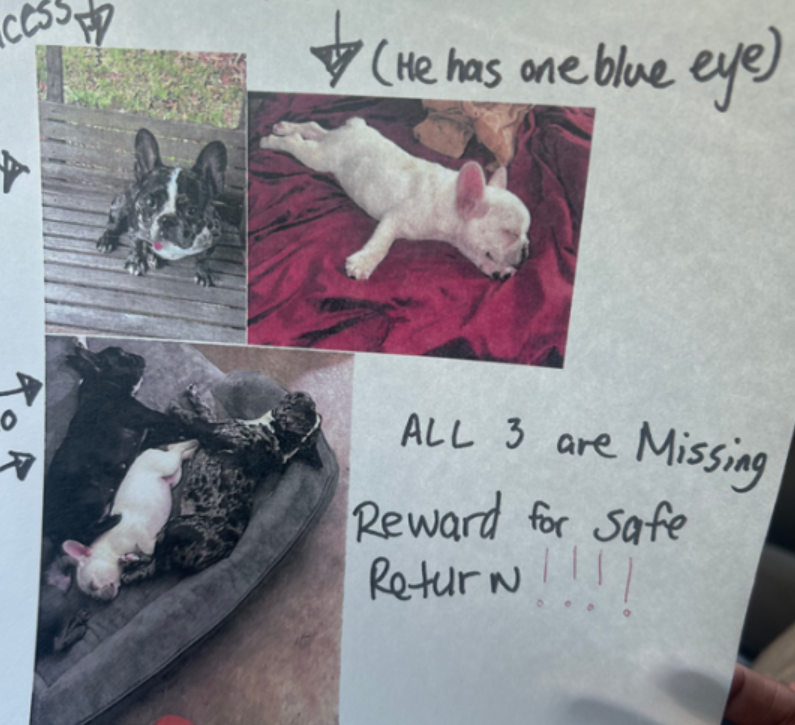 (He has one blue eye)
ALL 3 are Missing
Reward for safe
Return !!!!